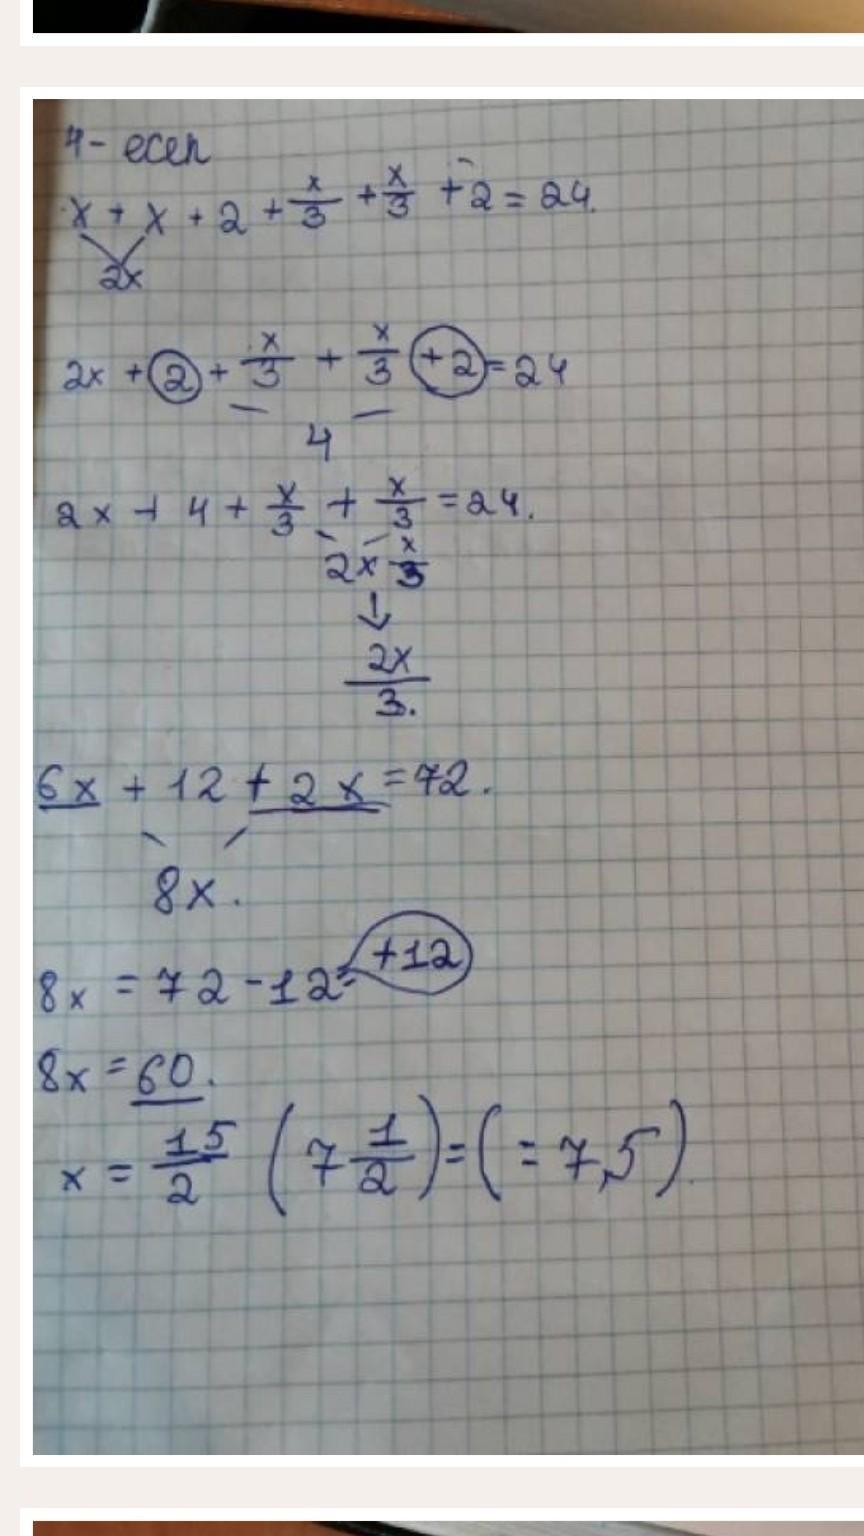 4- есеп
x + x + 2 + x/3 + x/3 + 2 = 24.
2x
2x + 2 + x/3 + x/3 + 2 = 24
4
2x + 4 + x/3 + x/3 = 24.
2 x x/3
↓
2x/3.
6x + 12 + 2x = 72.
8x.
8x = 72 - 12 = +12
8x = 60.
x = 15/2 (7 1/2) = ( = 7,5 )